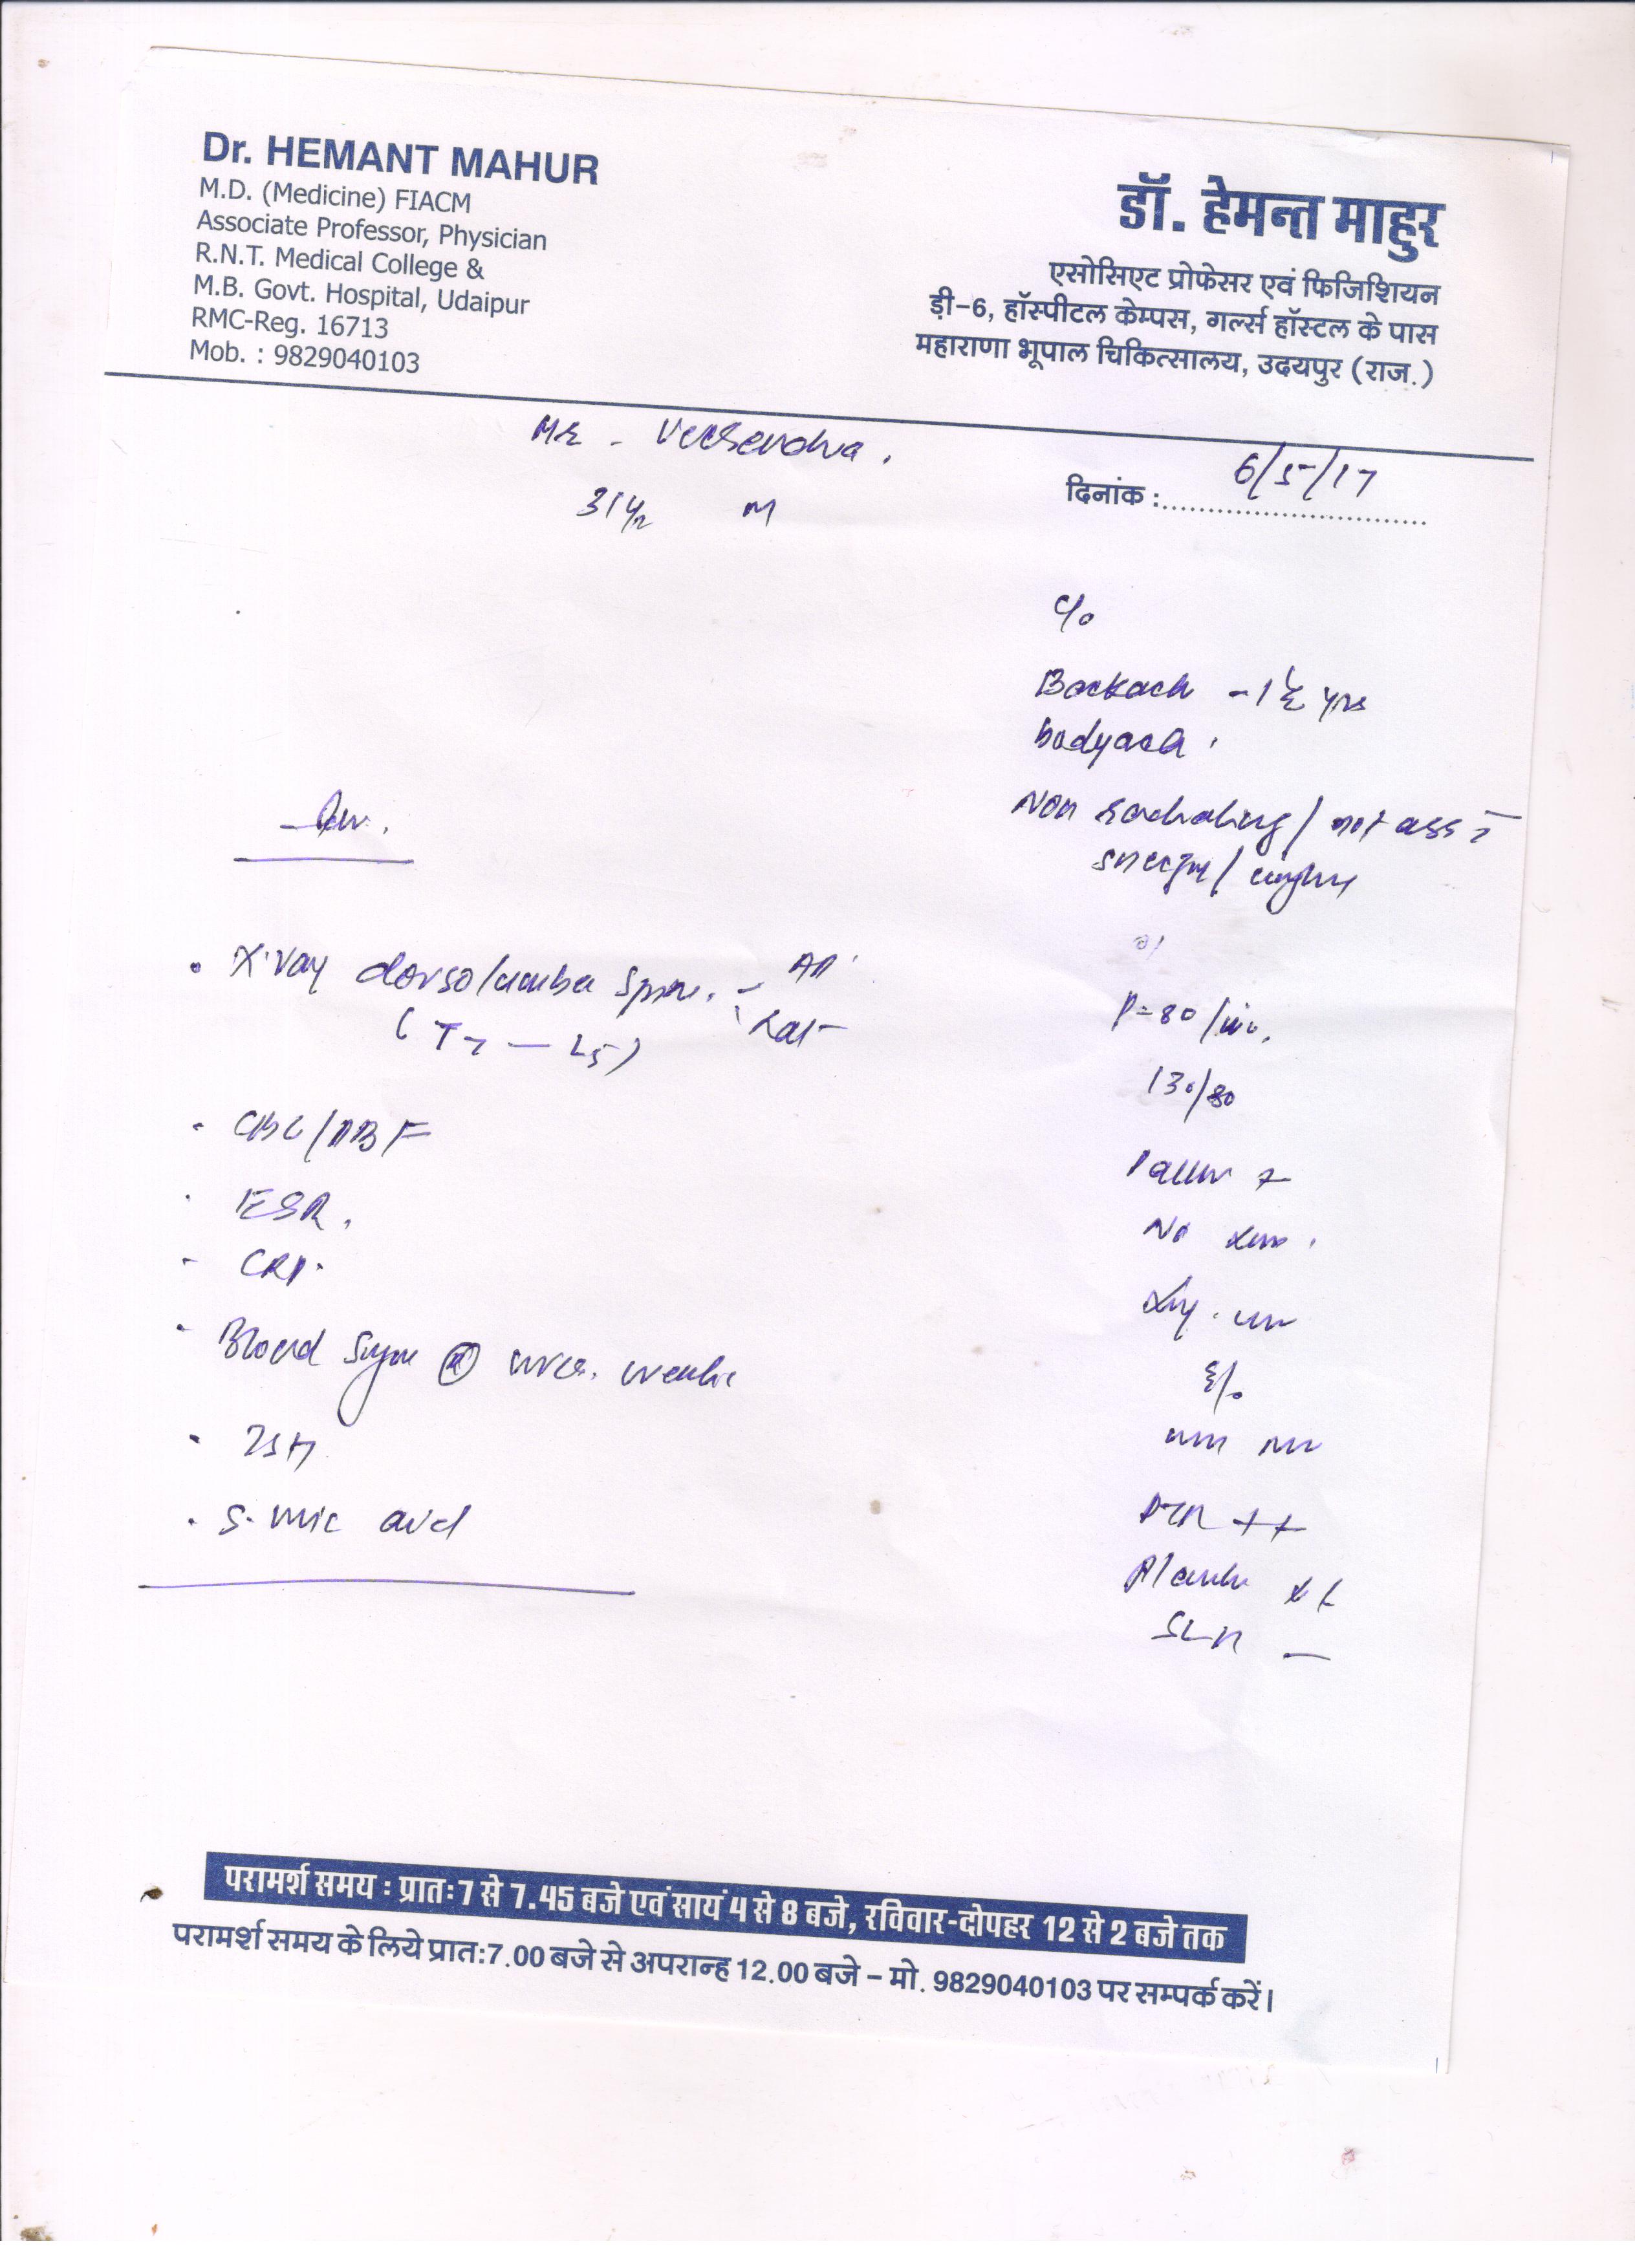 Dr. HEMANT MAHUR
M.D. (Medicine) FIACM
Associate Professor, Physician
R.N.T. Medical College &
M.B. Govt. Hospital, Udaipur
RMC-Reg. 16713
Mob. : 9829040103
डॉ. हेमन्त माहुर
एसोसिएट प्रोफेसर एवं फिजिशियन
ड़ी-6, हॉस्पीटल केम्पस, गर्ल्स हॉस्टल के पास
महाराणा भूपाल चिकित्सालय, उदयपुर (राज.)
Mr -
31 M
दिनांक : 6/5/17
c/o
Backach - 1½ yrs
bodyach
Non radiating / not ass c̄
/
P=80/
130/80
Pallor +
No
++
SLR -
• X'ray dorsolumba spine. - AP
Lat
(T7 - L5)
• CBC/PBF
• ESR.
• CRP.
• Blood
• TSH
• S. uric acid
परामर्श समय : प्रातः 7 से 7.45 बजे एवं सायं 4 से 8 बजे, रविवार-दोपहर 12 से 2 बजे तक
परामर्श समय के लिये प्रात:7.00 बजे से अपरान्ह 12.00 बजे – मो. 9829040103 पर सम्पर्क करें।